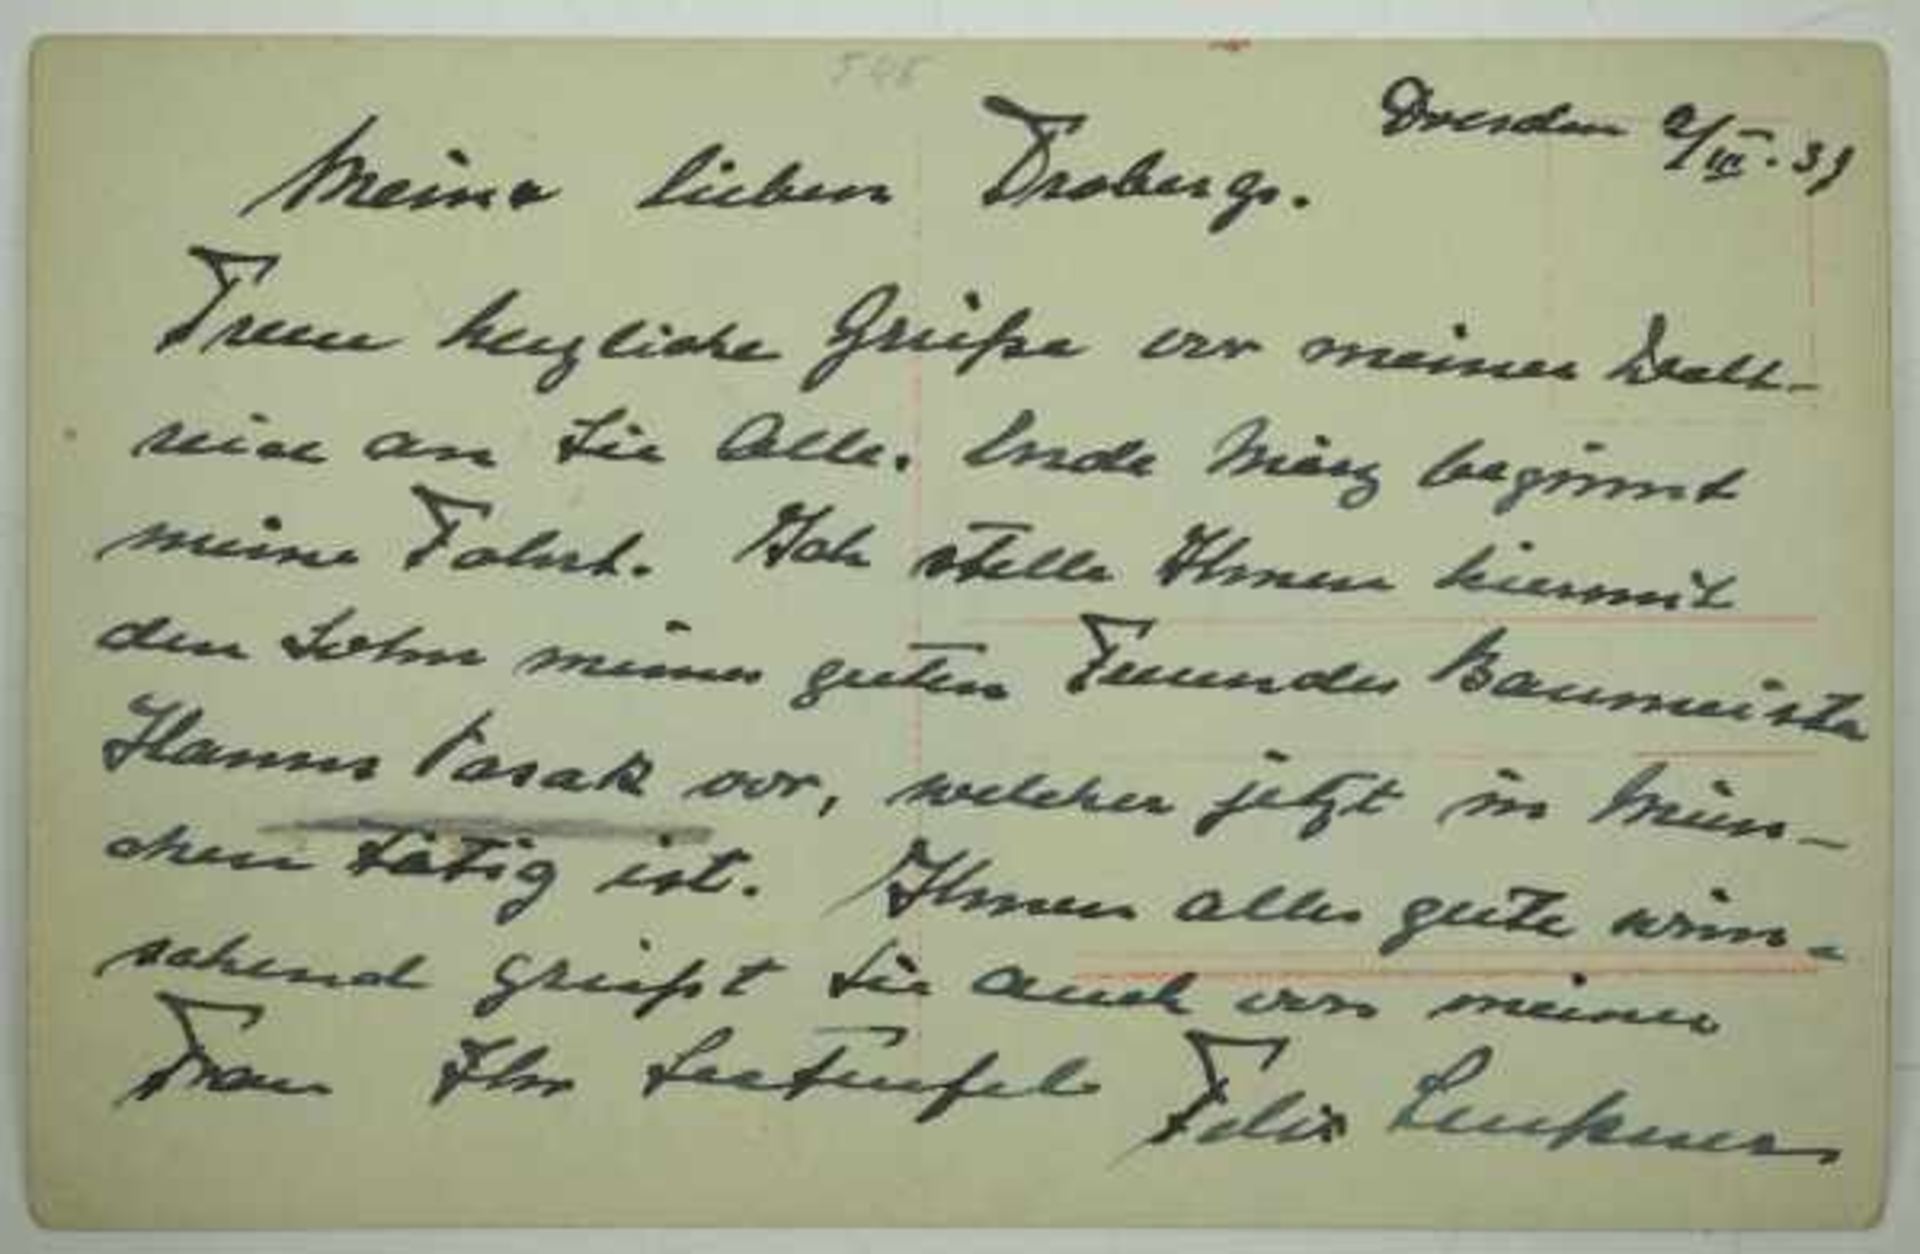 548
Dresden 2/III. 37
Meine lieben Trobergs.
Treue herzliche Grüße vor meiner Welt-
reise an Sie Alle. Ende März beginnt
meine Fahrt. Ich stelle Ihnen hiermit
den Sohn meines guten Freundes Baumeister
Hanns Pasak vor, welcher jetzt in Mün-
chen tätig ist. Ihnen alles gute wün-
schend grüßt Sie auch von meiner
Frau Ihr Seeteufel Felix Luckner